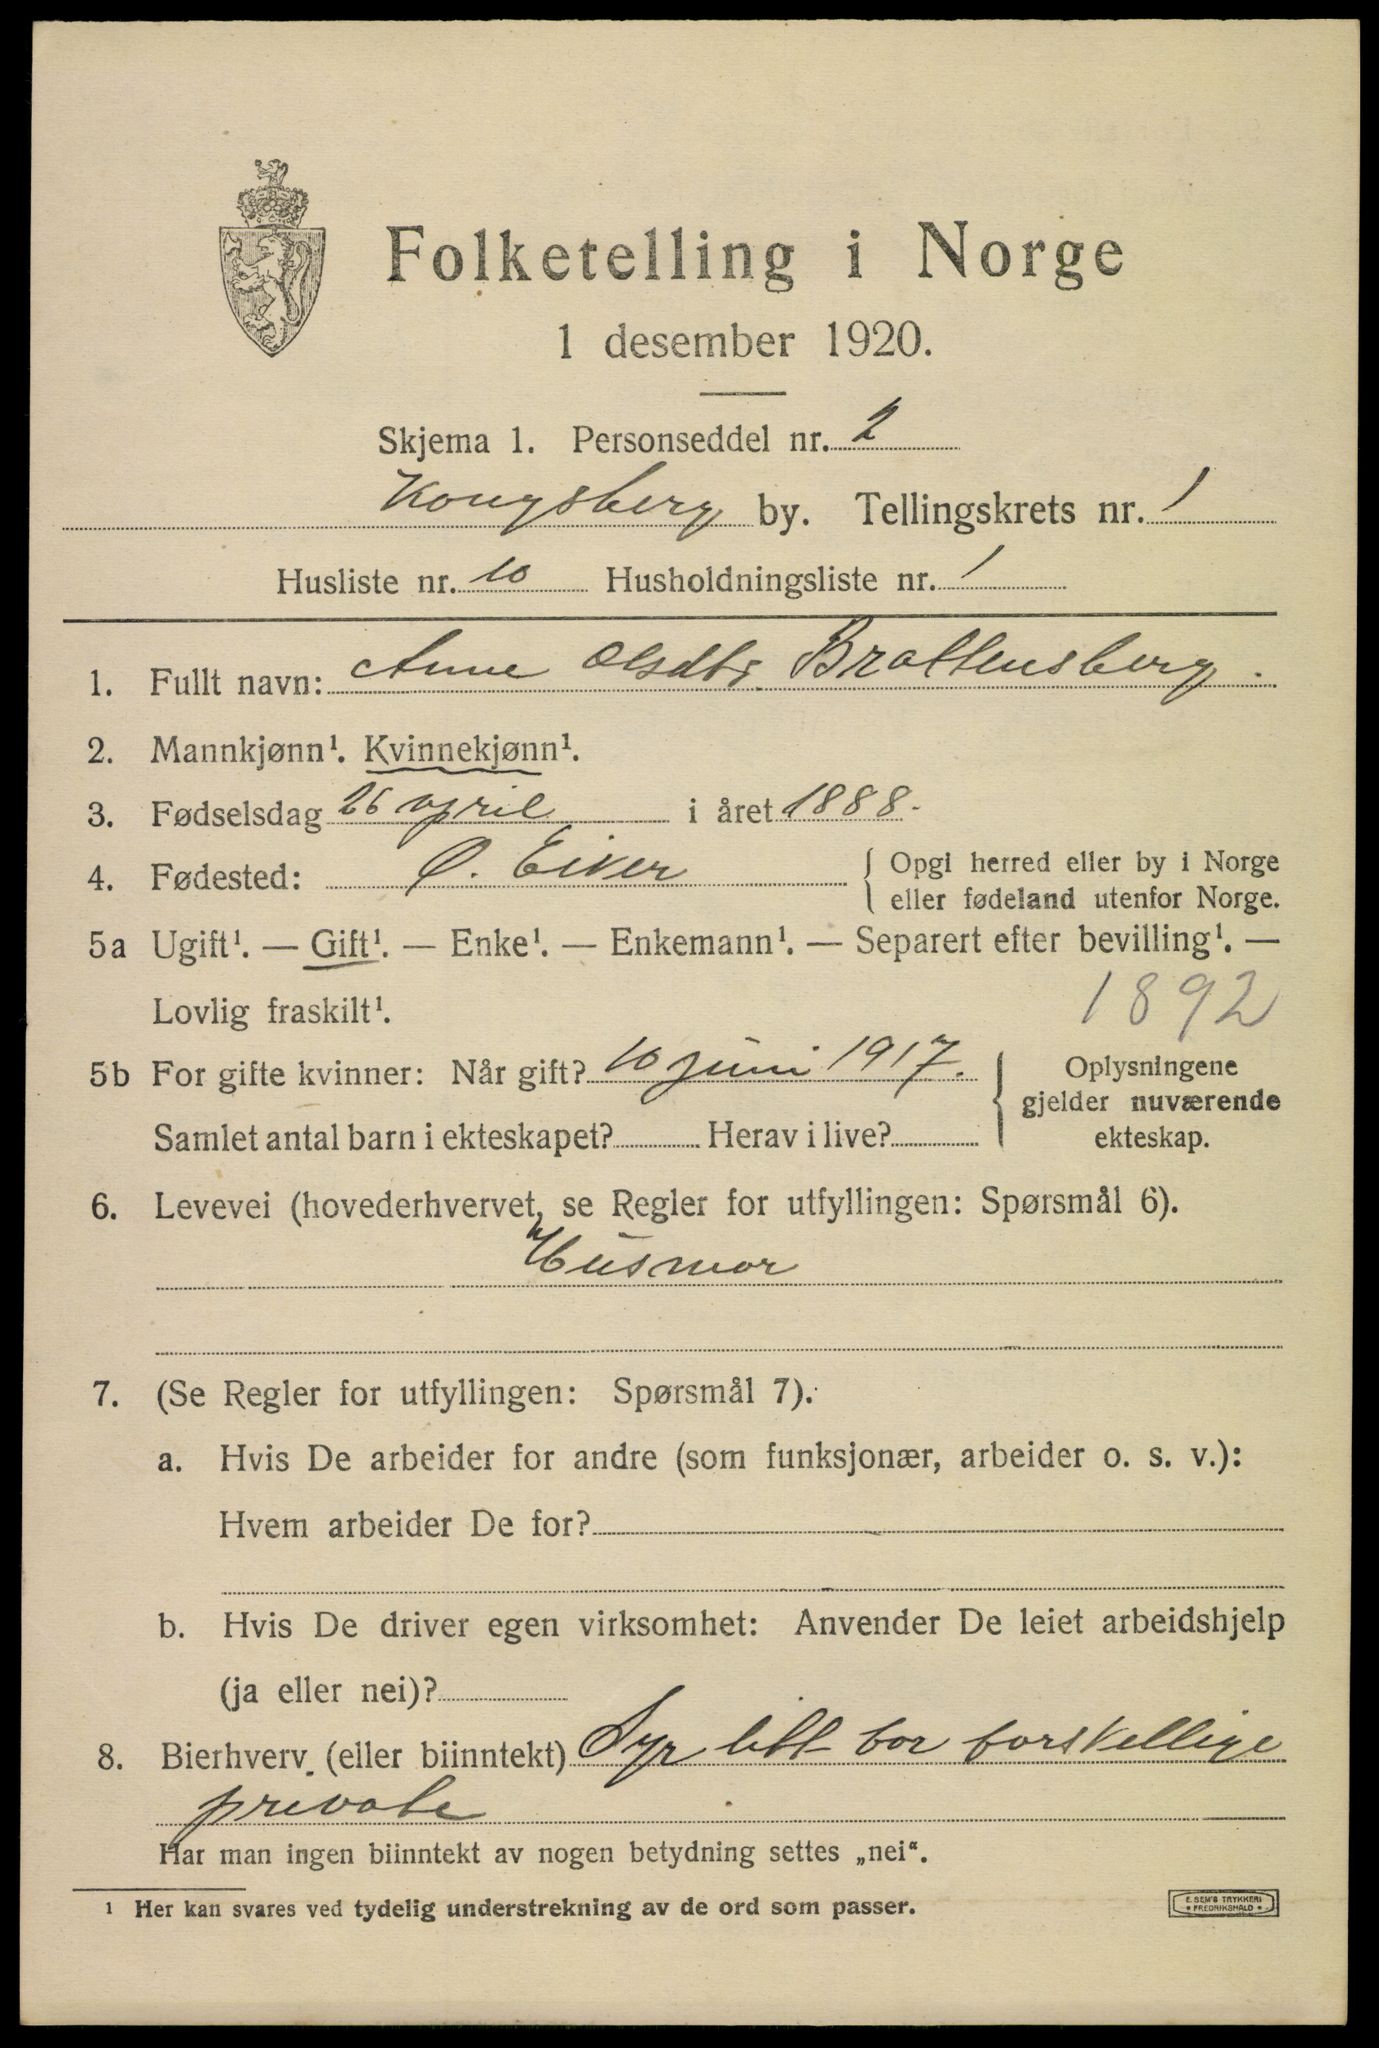 Folketelling i Norge
1 desember 1920.
Skjema 1. Personseddel nr. 2
Kongsberg by. Tellingskrets nr. 1
Husliste nr. 10 Husholdningsliste nr. 1
1. Fullt navn: Anne Olsdtr. Brattensberg.
2. Mannkjønn¹. Kvinnekjønn¹.
3. Fødselsdag 26 april i året 1888.
4. Fødested: Ø. Eiker { Opgi herred eller by i Norge
eller fødeland utenfor Norge.
5a Ugift¹. — Gift¹. — Enke¹. — Enkemann¹. — Separert efter bevilling¹. —
Lovlig fraskilt¹. 1892
5b For gifte kvinner: Når gift? 10 juni 1917. { Oplysningene
gjelder nuværende
Samlet antal barn i ekteskapet? Herav i live? ekteskap.
6. Levevei (hovederhvervet, se Regler for utfyllingen: Spørsmål 6).
Husmor
7. (Se Regler for utfyllingen: Spørsmål 7).
a. Hvis De arbeider for andre (som funksjonær, arbeider o. s. v.):
Hvem arbeider De for?
b. Hvis De driver egen virksomhet: Anvender De leiet arbeidshjelp
(ja eller nei)?
8. Bierhverv (eller biinntekt) Syr litt for forskellige
private
Har man ingen biinntekt av nogen betydning settes „nei“.
¹ Her kan svares ved tydelig understrekning av de ord som passer.
E. SEM'S TRYKKERI
FREDRIKSHALD